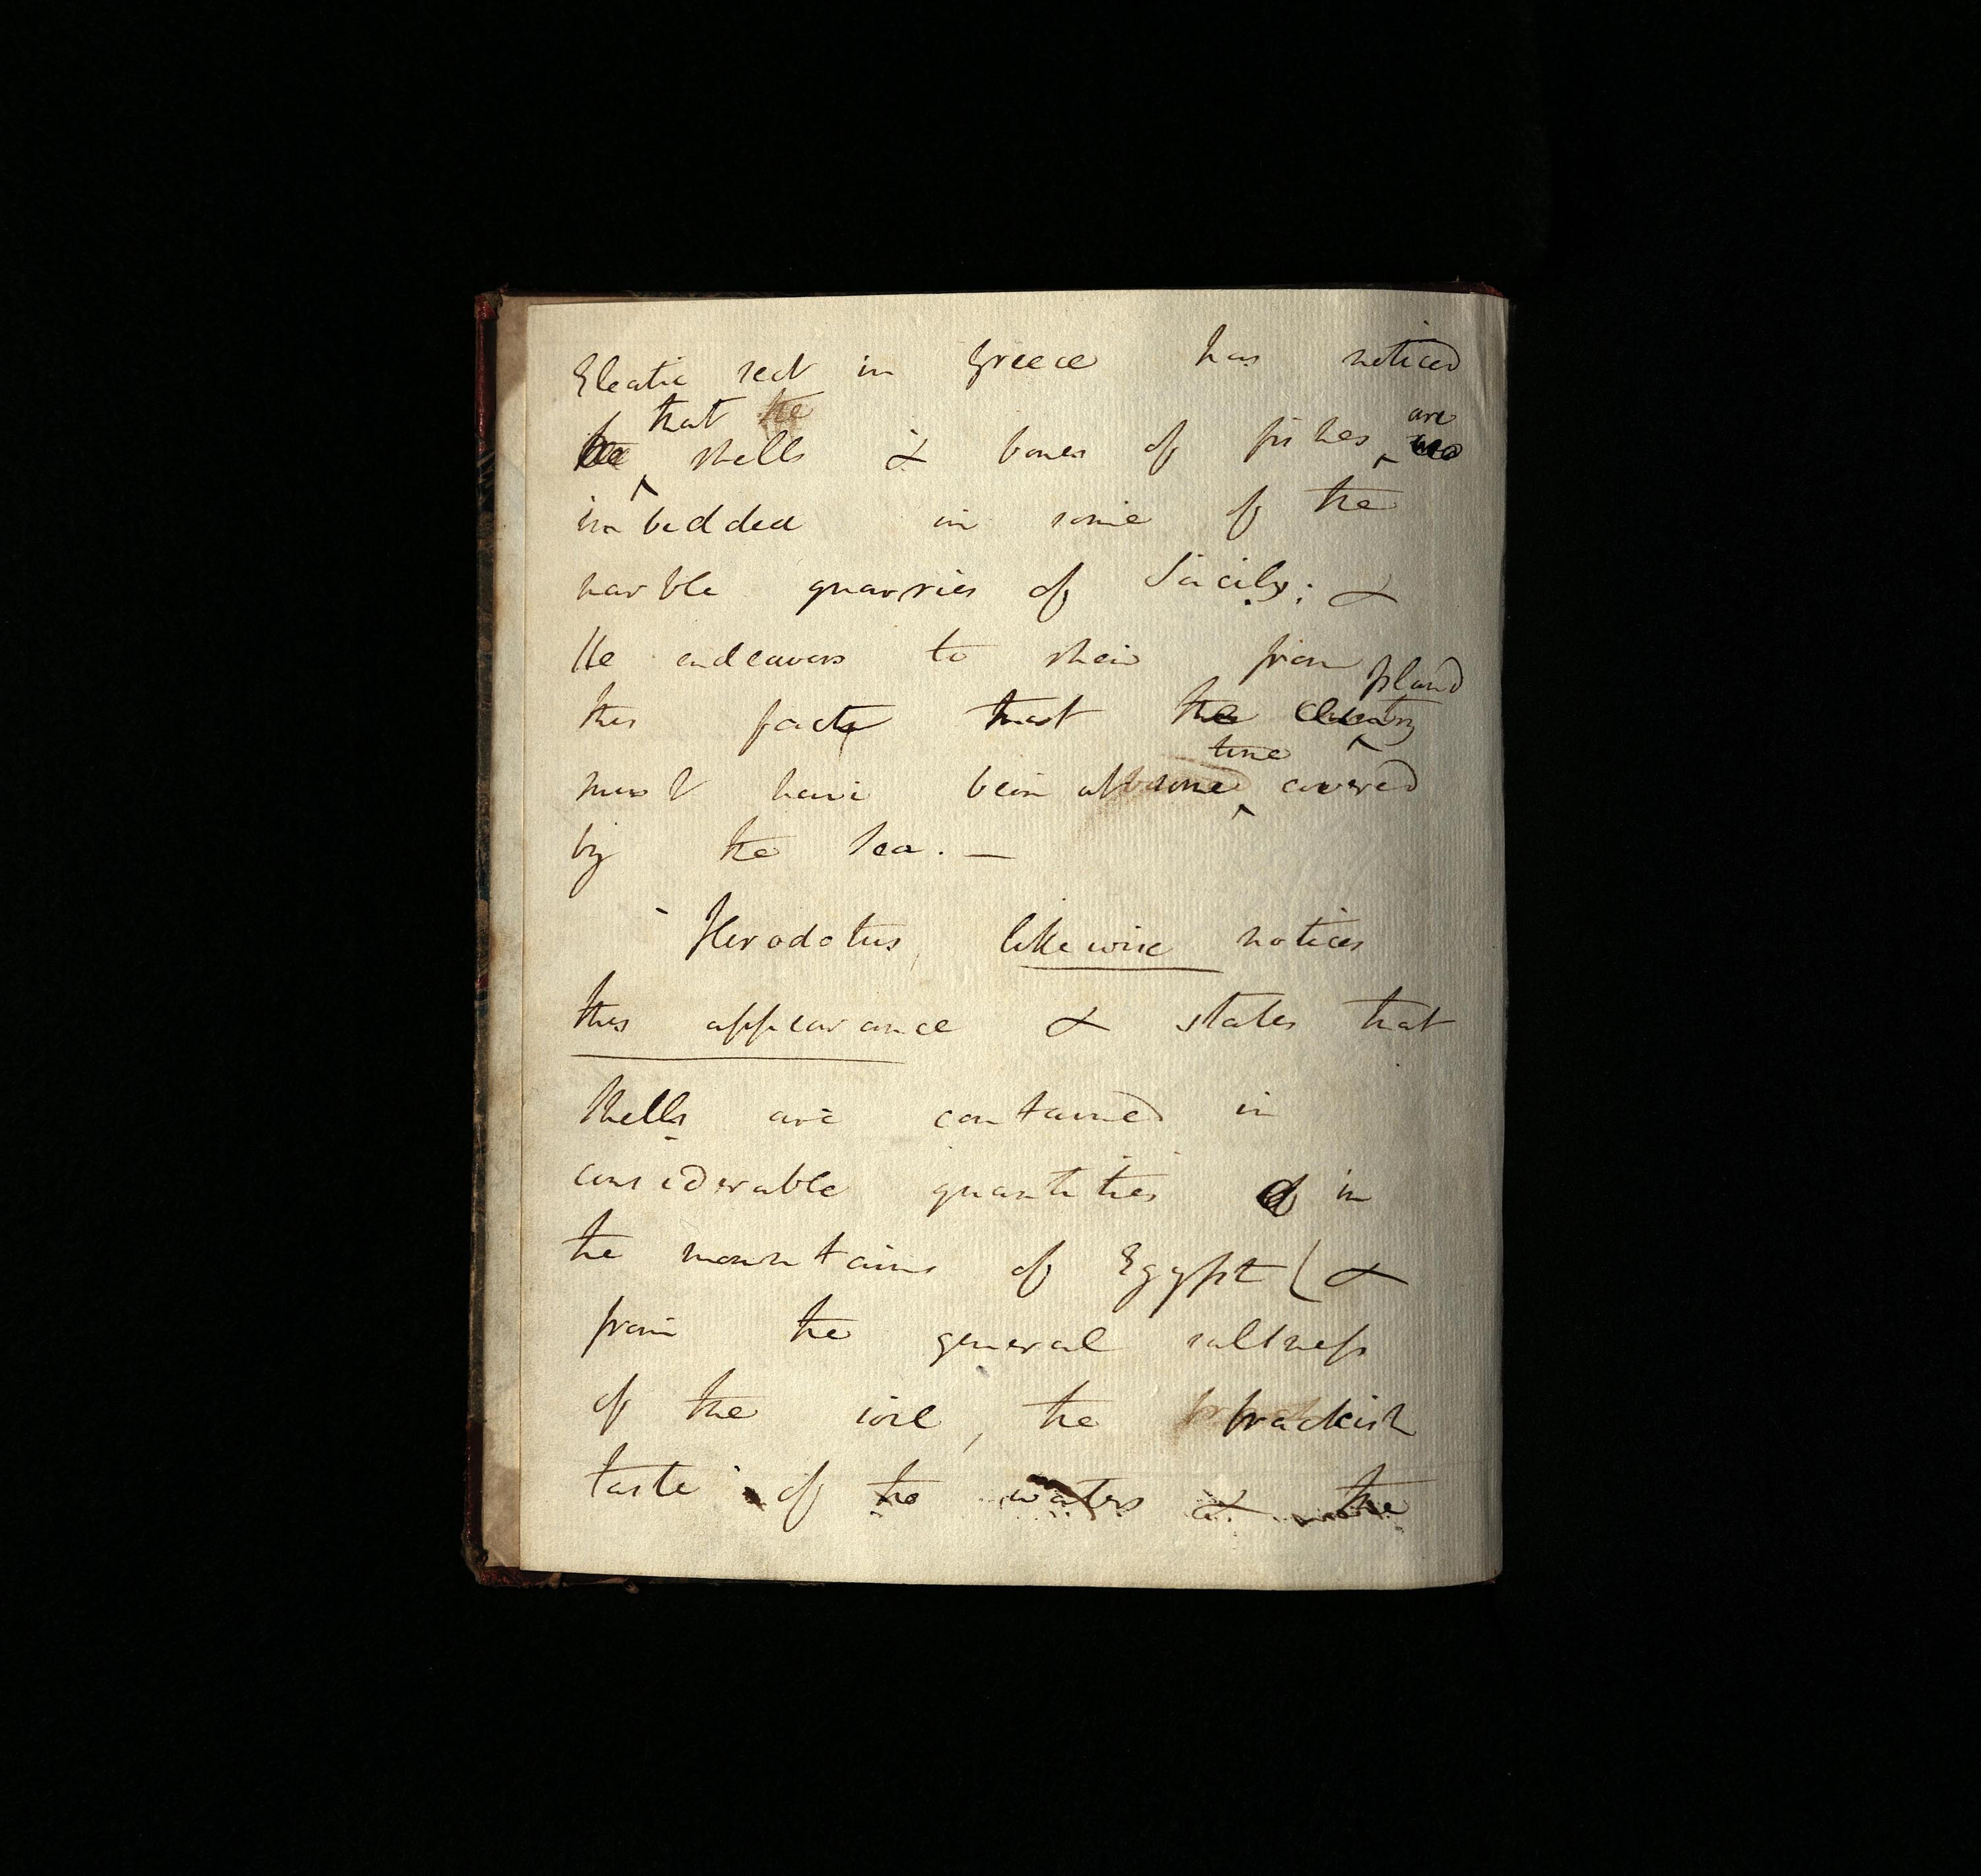 Eleatic sect in Greece has noticed
that the are
the shells & bones of fishes
imbedded in some of the
marble quarries of Sicily; &
He endeavors to shew from
Island
this fact that the country
time
must have been at some covered
by the Sea. —
Herodotus, likewise notices
this appearance & states that
Shells are contained in
considerable quantities of in
the mountains of Egypt (&
from the general saltness
of the soil, the brackish
taste of the waters & the